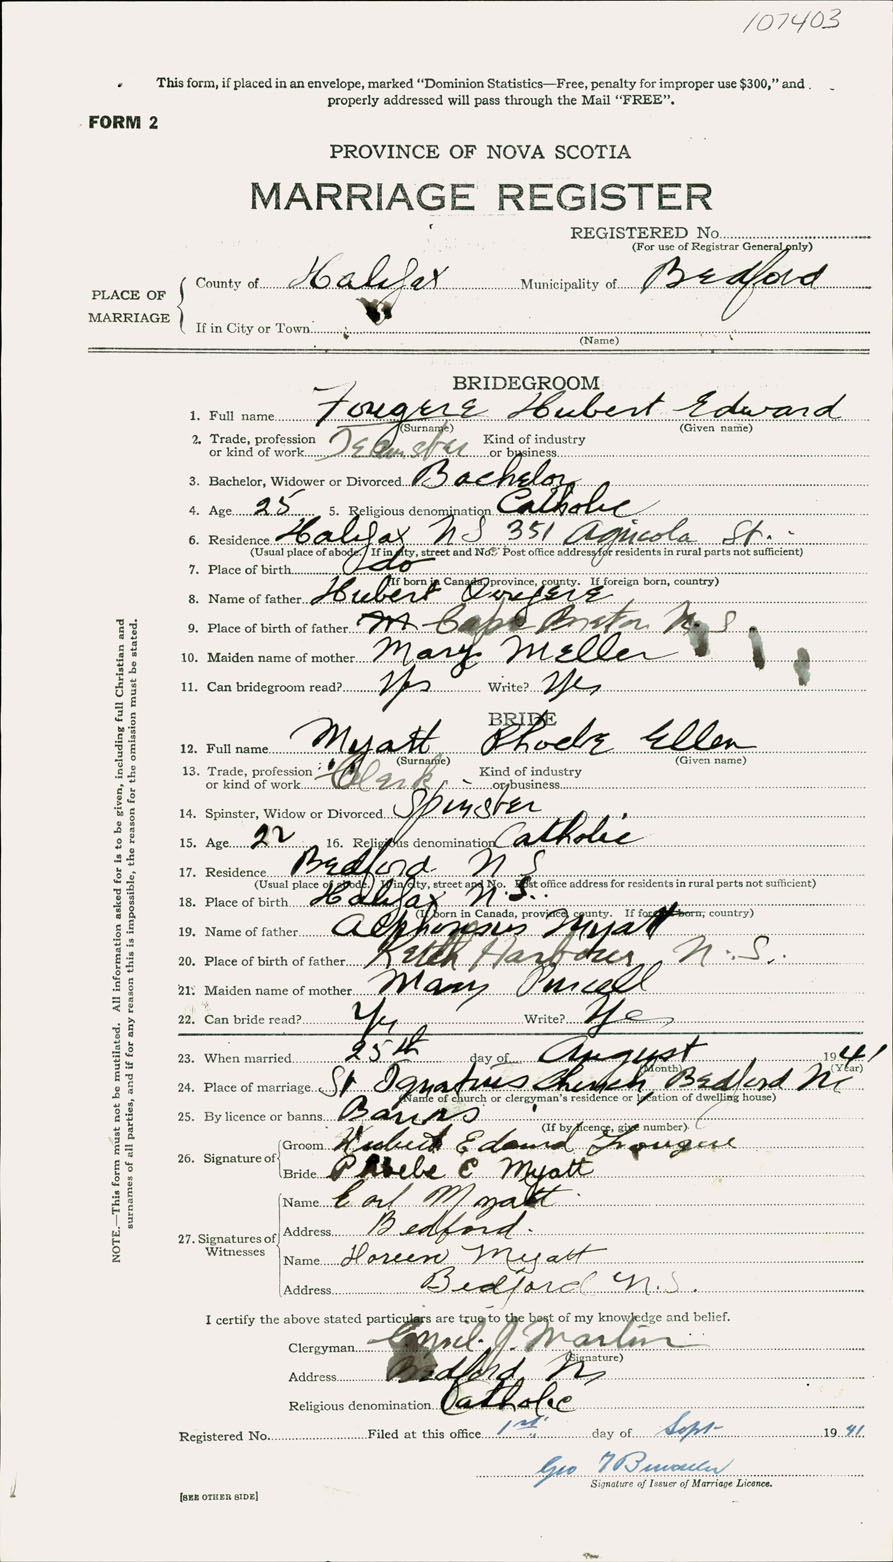 107403
This form, if placed in an envelope, marked "Dominion Statistics—Free, penalty for improper use $300," and
properly addressed will pass through the Mail "FREE".
FORM 2
PROVINCE OF NOVA SCOTIA
MARRIAGE REGISTER
REGISTERED No.
(For use of Registrar General only)
PLACE OF MARRIAGE
County of Halifax Municipality of Bedford
If in City or Town
(Name)
BRIDEGROOM
1. Full name Fougere Hubert Edward
(Surname) (Given name)
2. Trade, profession or kind of work Teamster Kind of industry or business
3. Bachelor, Widower or Divorced Bachelor
4. Age 25 5. Religious denomination Catholic
6. Residence Halifax NS 351 Agricola St.
(Usual place of abode. If in city, street and No. Post office address for residents in rural parts not sufficient)
7. Place of birth do
(If born in Canada, province, county. If foreign born, country)
8. Name of father Hubert Fougere
9. Place of birth of father Cape Breton N.S.
10. Maiden name of mother Mary Meller
11. Can bridegroom read? Yes Write? Yes
BRIDE
12. Full name Myatt Phoebe Ellen
(Surname) (Given name)
13. Trade, profession or kind of work Clerk Kind of industry or business
14. Spinster, Widow or Divorced Spinster
15. Age 22 16. Religious denomination Catholic
17. Residence Bedford N S
(Usual place of abode. If in city, street and No. Post office address for residents in rural parts not sufficient)
18. Place of birth Halifax N.S.
(If born in Canada, province, county. If foreign born, country)
19. Name of father Alphonsus Myatt
20. Place of birth of father Harbour N.S.
21. Maiden name of mother Mary Purcell
22. Can bride read? Yes Write? Yes
23. When married 25th day of August 1941
(Month) (Year)
24. Place of marriage St Ignatius Church Bedford NS
(Name of church or clergyman's residence or location of dwelling house)
25. By licence or banns Banns
(If by licence, give number)
26. Signature of
Groom Hubert Edward Fougere
Bride Phoebe E Myatt
27. Signatures of Witnesses
Name Earl Myatt
Address Bedford.
Name Myatt
Address Bedford N.S.
I certify the above stated particulars are true to the best of my knowledge and belief.
Clergyman Cyril J. Martin
(Signature)
Address Bedford NS
Religious denomination Catholic
Registered No. Filed at this office 1st day of Sept 1941
Geo
Signature of Issuer of Marriage Licence.
[SEE OTHER SIDE]
NOTE.—This form must not be mutilated. All information asked for is to be given, including full Christian and
surnames of all parties, and if for any reason this is impossible, the reason for the omission must be stated.